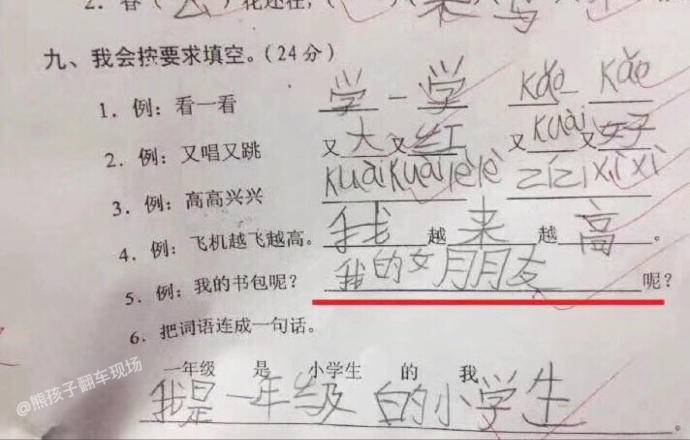 2．春（云）花还在，
九、我会按要求填空。（24分）
1．例：看一看 学一学 kǎo一kǎo
2．例：又唱又跳 又大又红 又kuài又好
3．例：高高兴兴 kuàikuàilèlè zǐzǐxìxì
4．例：飞机越飞越高。我越来越高。
5．例：我的书包呢？ 我的女月月友呢？
6．把词语连成一句话。
一年级 是 小学生 的 我
我是一年级的小学生。
@熊孩子翻车现场